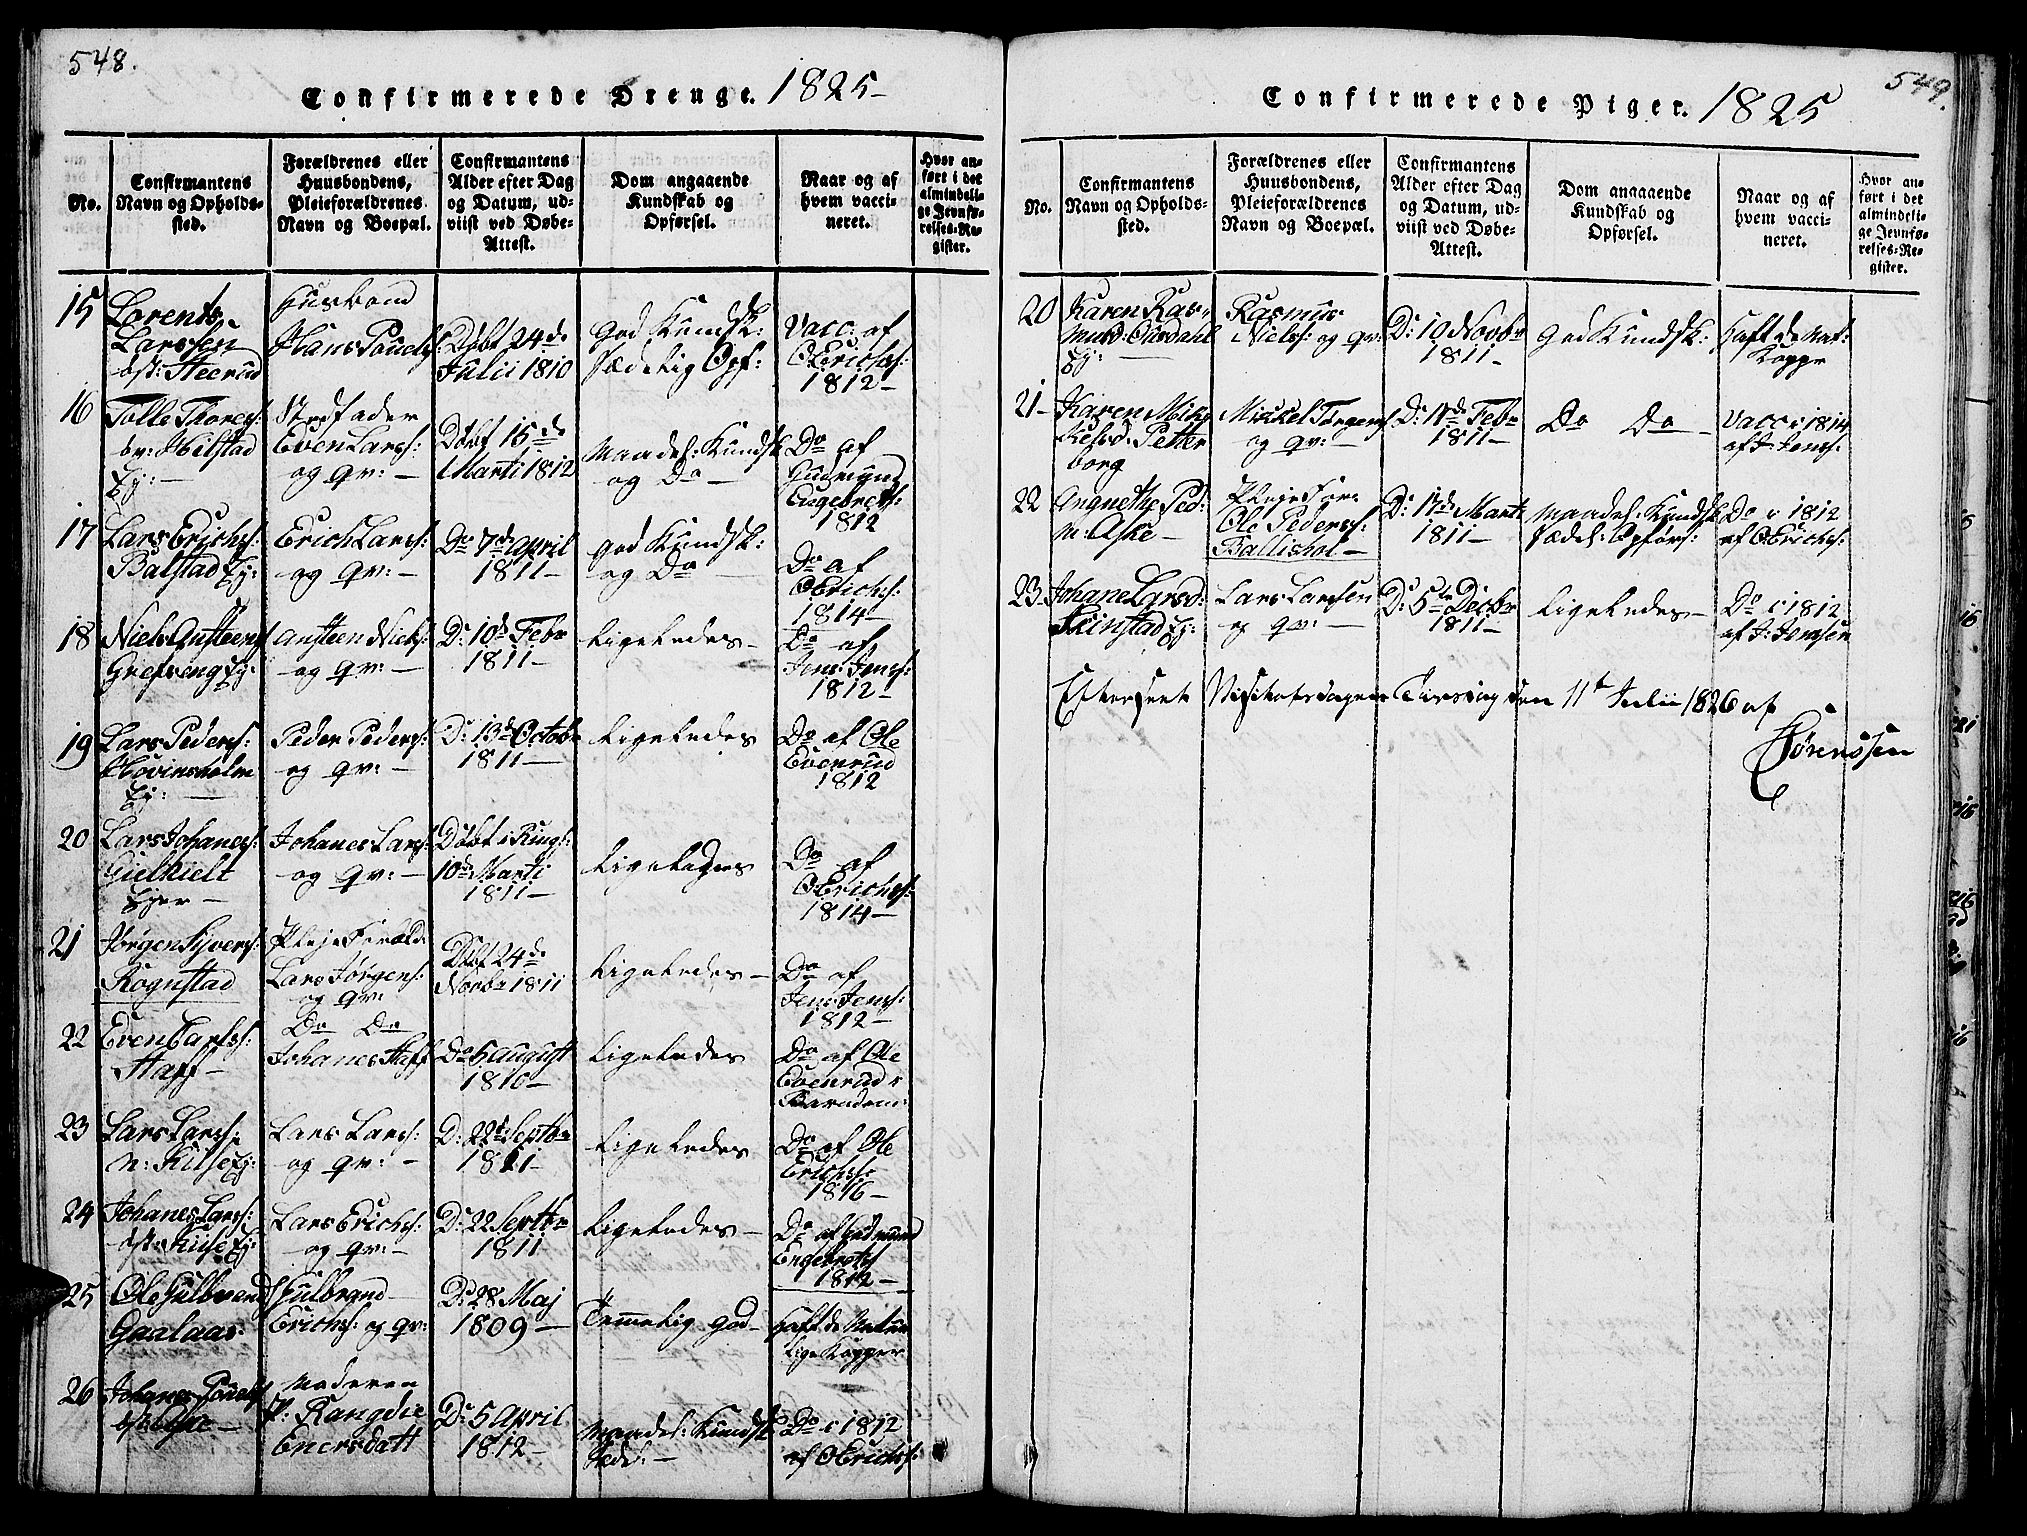 548.
Confirmerede Drenge. 1825-
No.
Confirmantens
Navn og Opholds-
sted.
Forældrenes eller
Huusbondens,
Pleieforældrenes
Navn og Boepæl.
Confirmantens
Alder efter Dag
og Datum, ud-
viist ved Døbe-
Attest.
Dom angaaende
Kundskab og
Opførsel.
Naar og af
hvem vacci-
neret.
Hvor an-
ført i det
almindeli-
ge Jevnfø-
relses-Re-
gister.
15
Lorents
Larssen
øst: Steerud
Husbond
Hans Pouels:
Døbt 24de
Julii 1810
God Kundsk:
sædelig Opf:
Vacc: af
O Erichs:
1812-
16
Tolle Thores:
Hilstad
Ej: -
Stedfader
Even Lars:
og qv: -
Døbt 15de
Marti 1812
Maadel: Kundsk
og Do -
Do af
Gudmund
Engebrets:
1812
17
Lars Erichs:
Balstad Ej:
Erich Lars:
og qv: -
Do 7de April
1811-
god Kundsk:
og Do -
Do af
O Erichs:
1814-
18
Niels Ansteens:
Grefseng Ej:
Ansteen Niels:
og qv: -
D: 10de Febr
1811-
Ligeledes -
Do af
Jens Jens:
1812-
19
Lars Peders:
Hovinsholm
Ej: -
Peder Peders:
og qv: -
D: 13de Octobr
1811-
Ligeledes
Do af Ole
Evenrud
1812
20
Lars Johanes:
Gielkielt
Ejer -
Johanes Lars:
og qv: -
Døbt i Rings:
10de Marti
1811-
Ligeledes
Do af
O Erichs:
1814-
21
Jørgen Syvers:
Rognstad
Pleje Foræld:
Lars Jørgens:
og qv:
Døbt 24de
Novbr 1811
Ligeledes -
Do af
Jens Jens:
1812-
22
Even Carls:
Staff -
Do Do
Johanes Staff
Do 5 August
1810-
Ligeledes
Do af Ole
Evenrud i
Barndom:
23
Lars Lars:
n: Kilse Ej:
Lars Lars:
og qv: -
D: 22de Septbr
1811-
Ligeledes
Do af Ole
Erichs:
1816-
24
Johanes Lars:
øst: Kilse Ej:
Lars Erichs:
og qv: -
D: 22 Septbr
1811
Ligeledes -
Do af Gudmund
Engebrets:
1812-
25
Ole Gulbrands:
Gaalaas
Gulbrand
Erichs: og qv:
D: 28 Maj
1809-
Temmelig god -
Haft de Natur
lige Kopper
26
Johanes Pouels:
øst: Aske -
Moderen
P: Rangdie
Enersdatt
D: 5 April
1812-
Maadel: Kundsk
sædel: -
Do i 1812
af O Erichs:
549.
Confirmerede Piger. 1825
No.
Confirmantens
Navn og Opholds-
sted.
Forældrenes eller
Huusbondens,
Pleieforældrenes
Navn og Boepæl.
Confirmantens
Alder efter Dag
og Datum, ud-
viist ved Døbe-
Attest.
Dom angaaende
Kundskab og
Opførsel.
Naar og af
hvem vacci-
neret.
Hvor an-
ført i det
almindeli-
ge Jevnfø-
relses-Re-
gister.
20
Karen Ras-
musd:
Ej:
Rasmus
Niels: og qv:
D: 10 Novbr
1811-
God Kundsk:
Haft de Nat:
Kopper
21-
Karen Mik-
kelsd: Petter
borg
Mickel Torgers:
og qv: -
D: 11de Febr
1811-
Do Do -
Vacc i 1814
af J: Jens:
22
Angnethe Ped:
n: Aske -
Pleje For:
Ole Peders:
Ballishol -
D: 17de Marti
1811-
Maadel: Kundsk
sædel: Opførs:
Do i 1812
af O Erichs:
23
Johane Larsd:
Skinstad Ej:
Lars Larssen
og qv: -
D: 5te Decbr
1811-
Ligeledes -
Do i 1812
af J: Jenssen
Efterseet Visitatsdagen Tirsdag den 11te Julii 1826 af
Sørenssen